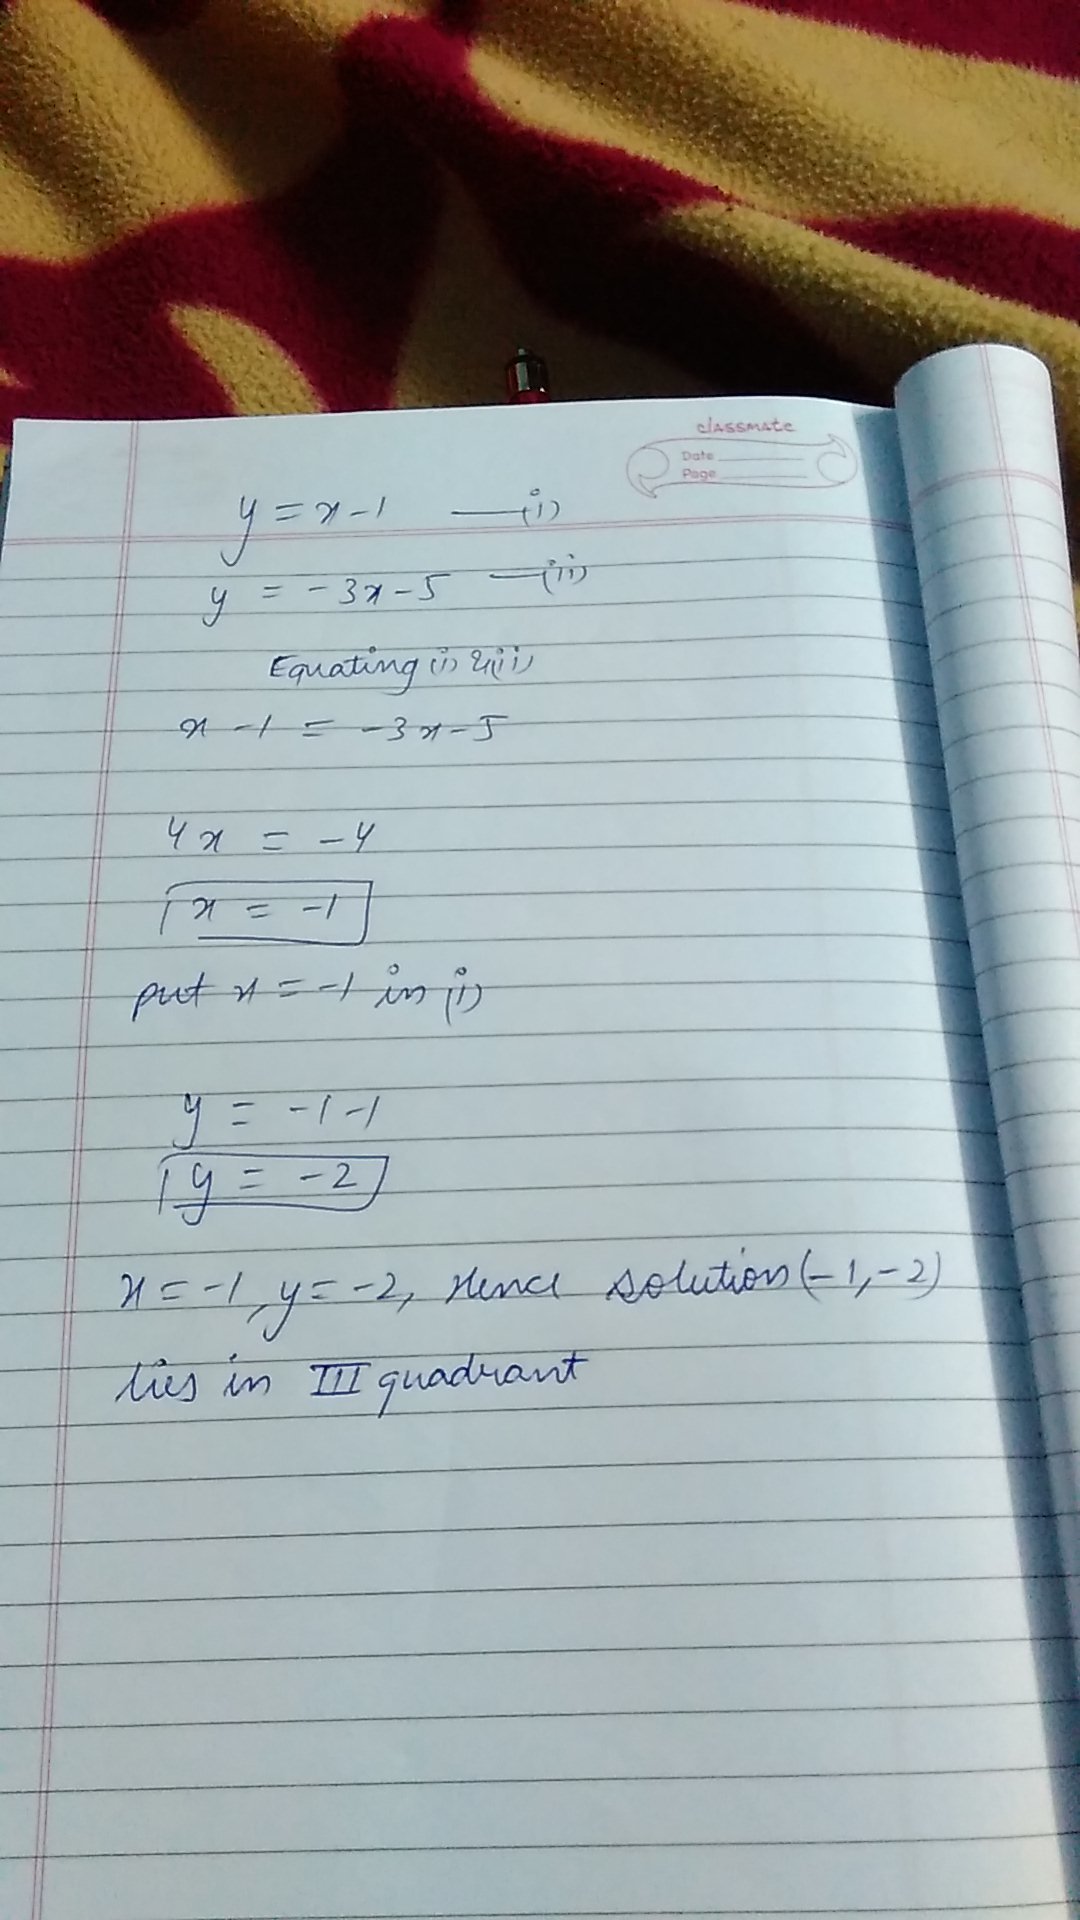 classmate
Date
Page
y = x - 1 —(i)
y = -3x - 5 —(ii)
Equating (i) & (ii)
x - 1 = -3x - 5
4x = -4
x = -1
put x = -1 in (i)
y = -1 - 1
y = -2
x = -1, y = -2, Hence solution (-1, -2)
lies in III quadrant